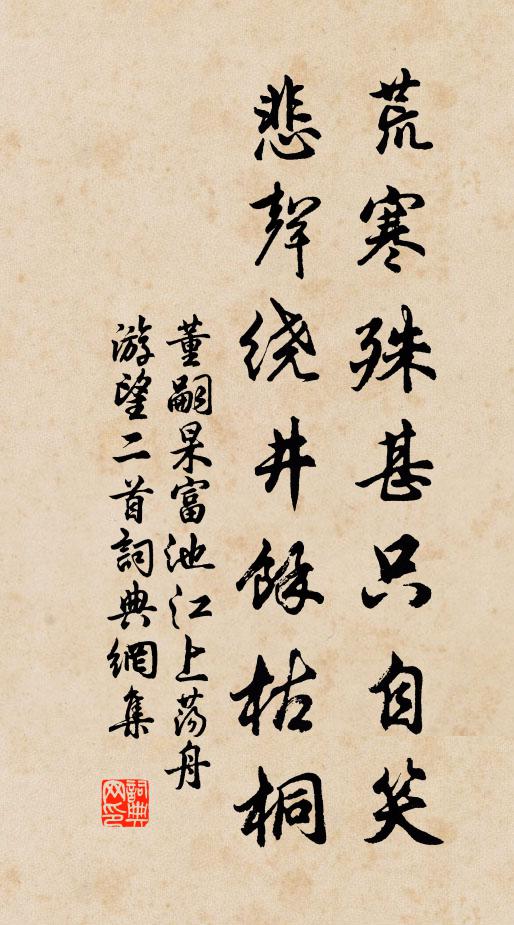 荒寒殊甚只自笑
悲聲绕井餘枯桐
董嗣杲富池江上荡舟
游望二首詞典網集
詞典网印